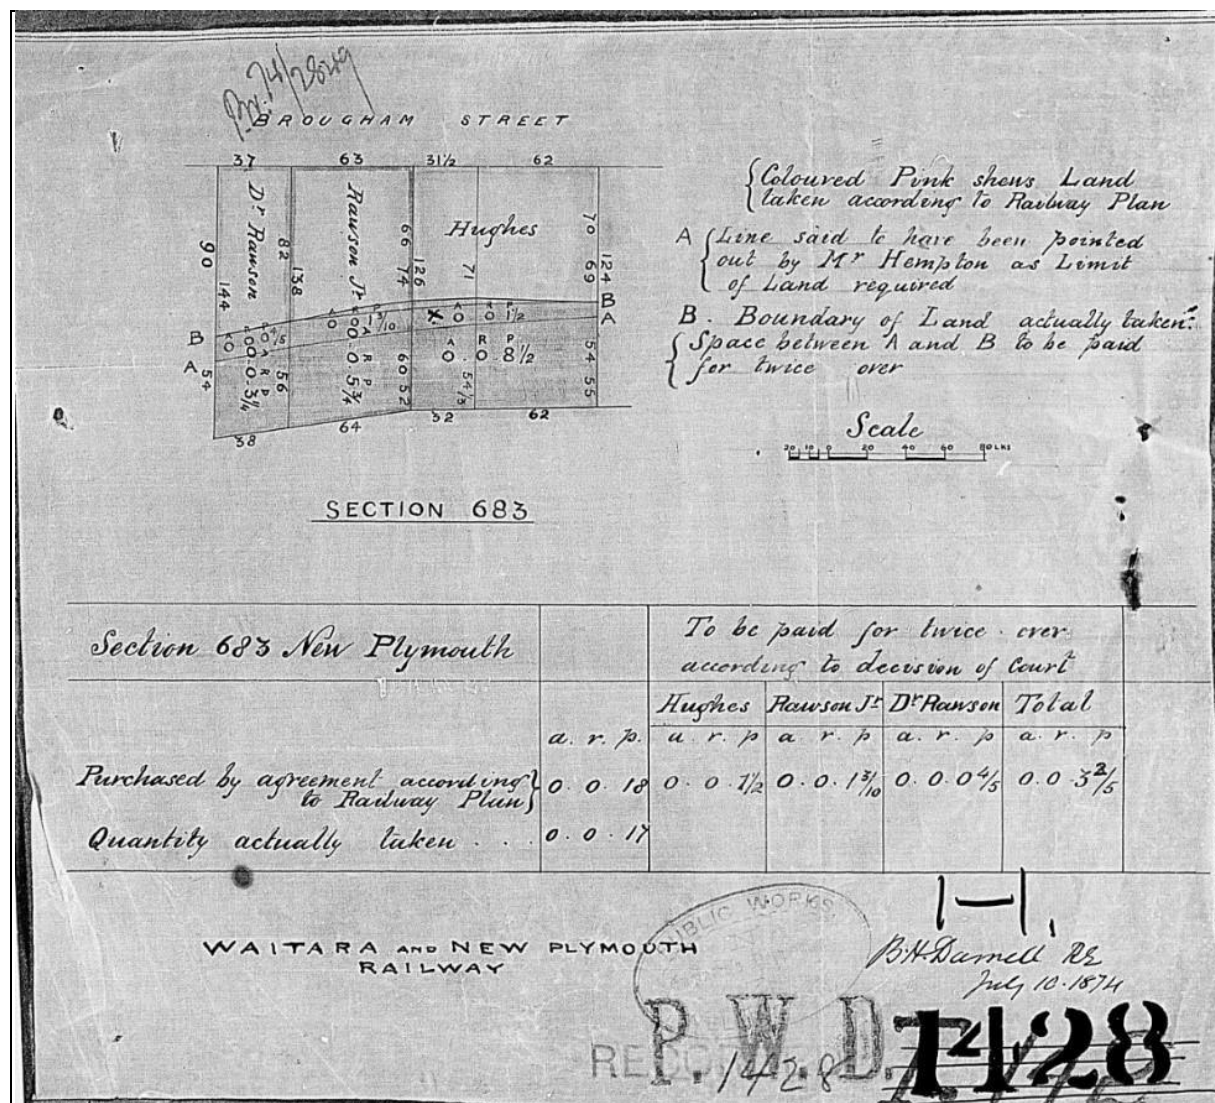 P.W. 74/2849
BROUGHAM STREET
37 63 31½ 62
Dr Rawson
Rawson Jr
Hughes
90 144 82 138 66 74 126 71 70 69 124
B
A
B
A
A R P
0 0 0 4/5
A R P
0 0 1 3/10
X
A R P
0 0 1½
A R P
0.0.3¼
A R P
0.0.5¾
A R P
0.0.8½
54 56 60 52 54½ 54 55
38 64 32 62
SECTION 683
Coloured Pink shews Land
taken according to Railway Plan
A Line said to have been pointed
out by Mr Hempton as Limit
of Land required
B. Boundary of Land actually taken.
Space between A and B to be paid
for twice over
Scale
20 10 0 20 40 60 80 LKS
Section 683 New Plymouth
To be paid for twice over
according to decision of Court
Hughes Rawson Jr Dr Rawson Total
a. r. p. a. r. p a. r. p a. r. p a. r. p
Purchased by agreement according 0. 0. 18 0. 0. 1½ 0. 0. 1 3/10 0. 0. 0 4/5 0. 0. 3 3/5
to Railway Plan
Quantity actually taken . . . 0. 0. 17
WAITARA AND NEW PLYMOUTH
RAILWAY
PUBLIC WORKS
H.
B.H. Darnell RE
July 10. 1874
P.W.D. 1428
1428